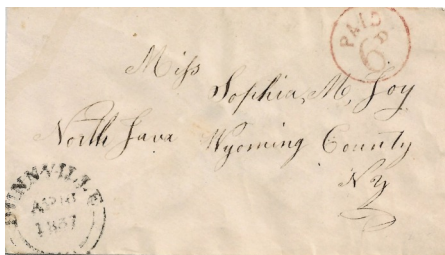 PAID
6D
Miss
Sophia, M, Joy
North Java Wyoming County
NY
DUNNVILLE
1857